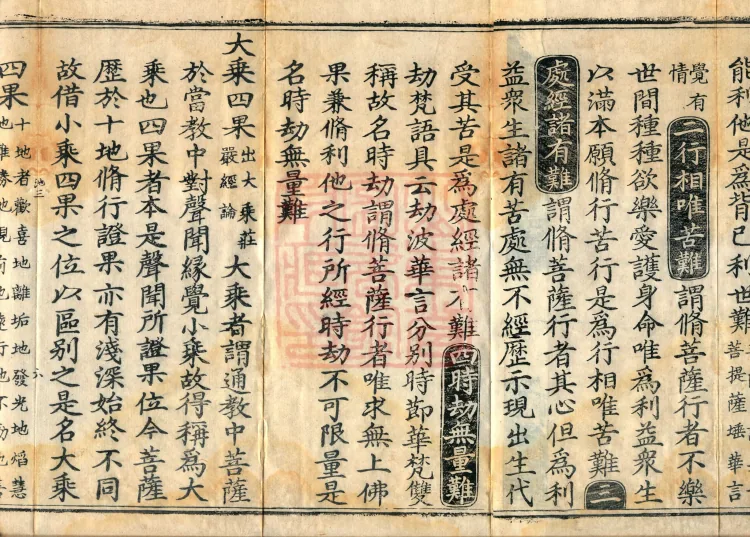 能利他是爲背已利世難菩提薩埵華言
覺有情二行相唯苦難謂脩菩薩行者不樂
世間種種欲樂愛護身命唯爲利益衆生
以滿本願脩行苦行是爲行相唯苦難三
處經諸有難謂脩菩薩行者其心但爲利
益衆生諸有苦處無不經歷示現出生代
受其苦是爲處經諸有難四時劫無量難
劫梵語具云劫波華言分別時節華梵雙
稱故名時劫謂脩菩薩行者唯求無上佛
果兼脩利他之行所經時劫不可限量是
名時劫無量難
大乘四果出大乘莊嚴經論大乘者謂通教中菩薩
於當教中對聲聞緣覺小乘故得稱爲大
乘也四果者本是聲聞所證果位今菩薩
歷於十地脩行證果亦有淺深始終不同
故借小乘四果之位以區別之是名大乘
四果十地者歡喜地離垢地發光地焰慧
地難勝地現前地遠行地不動地善